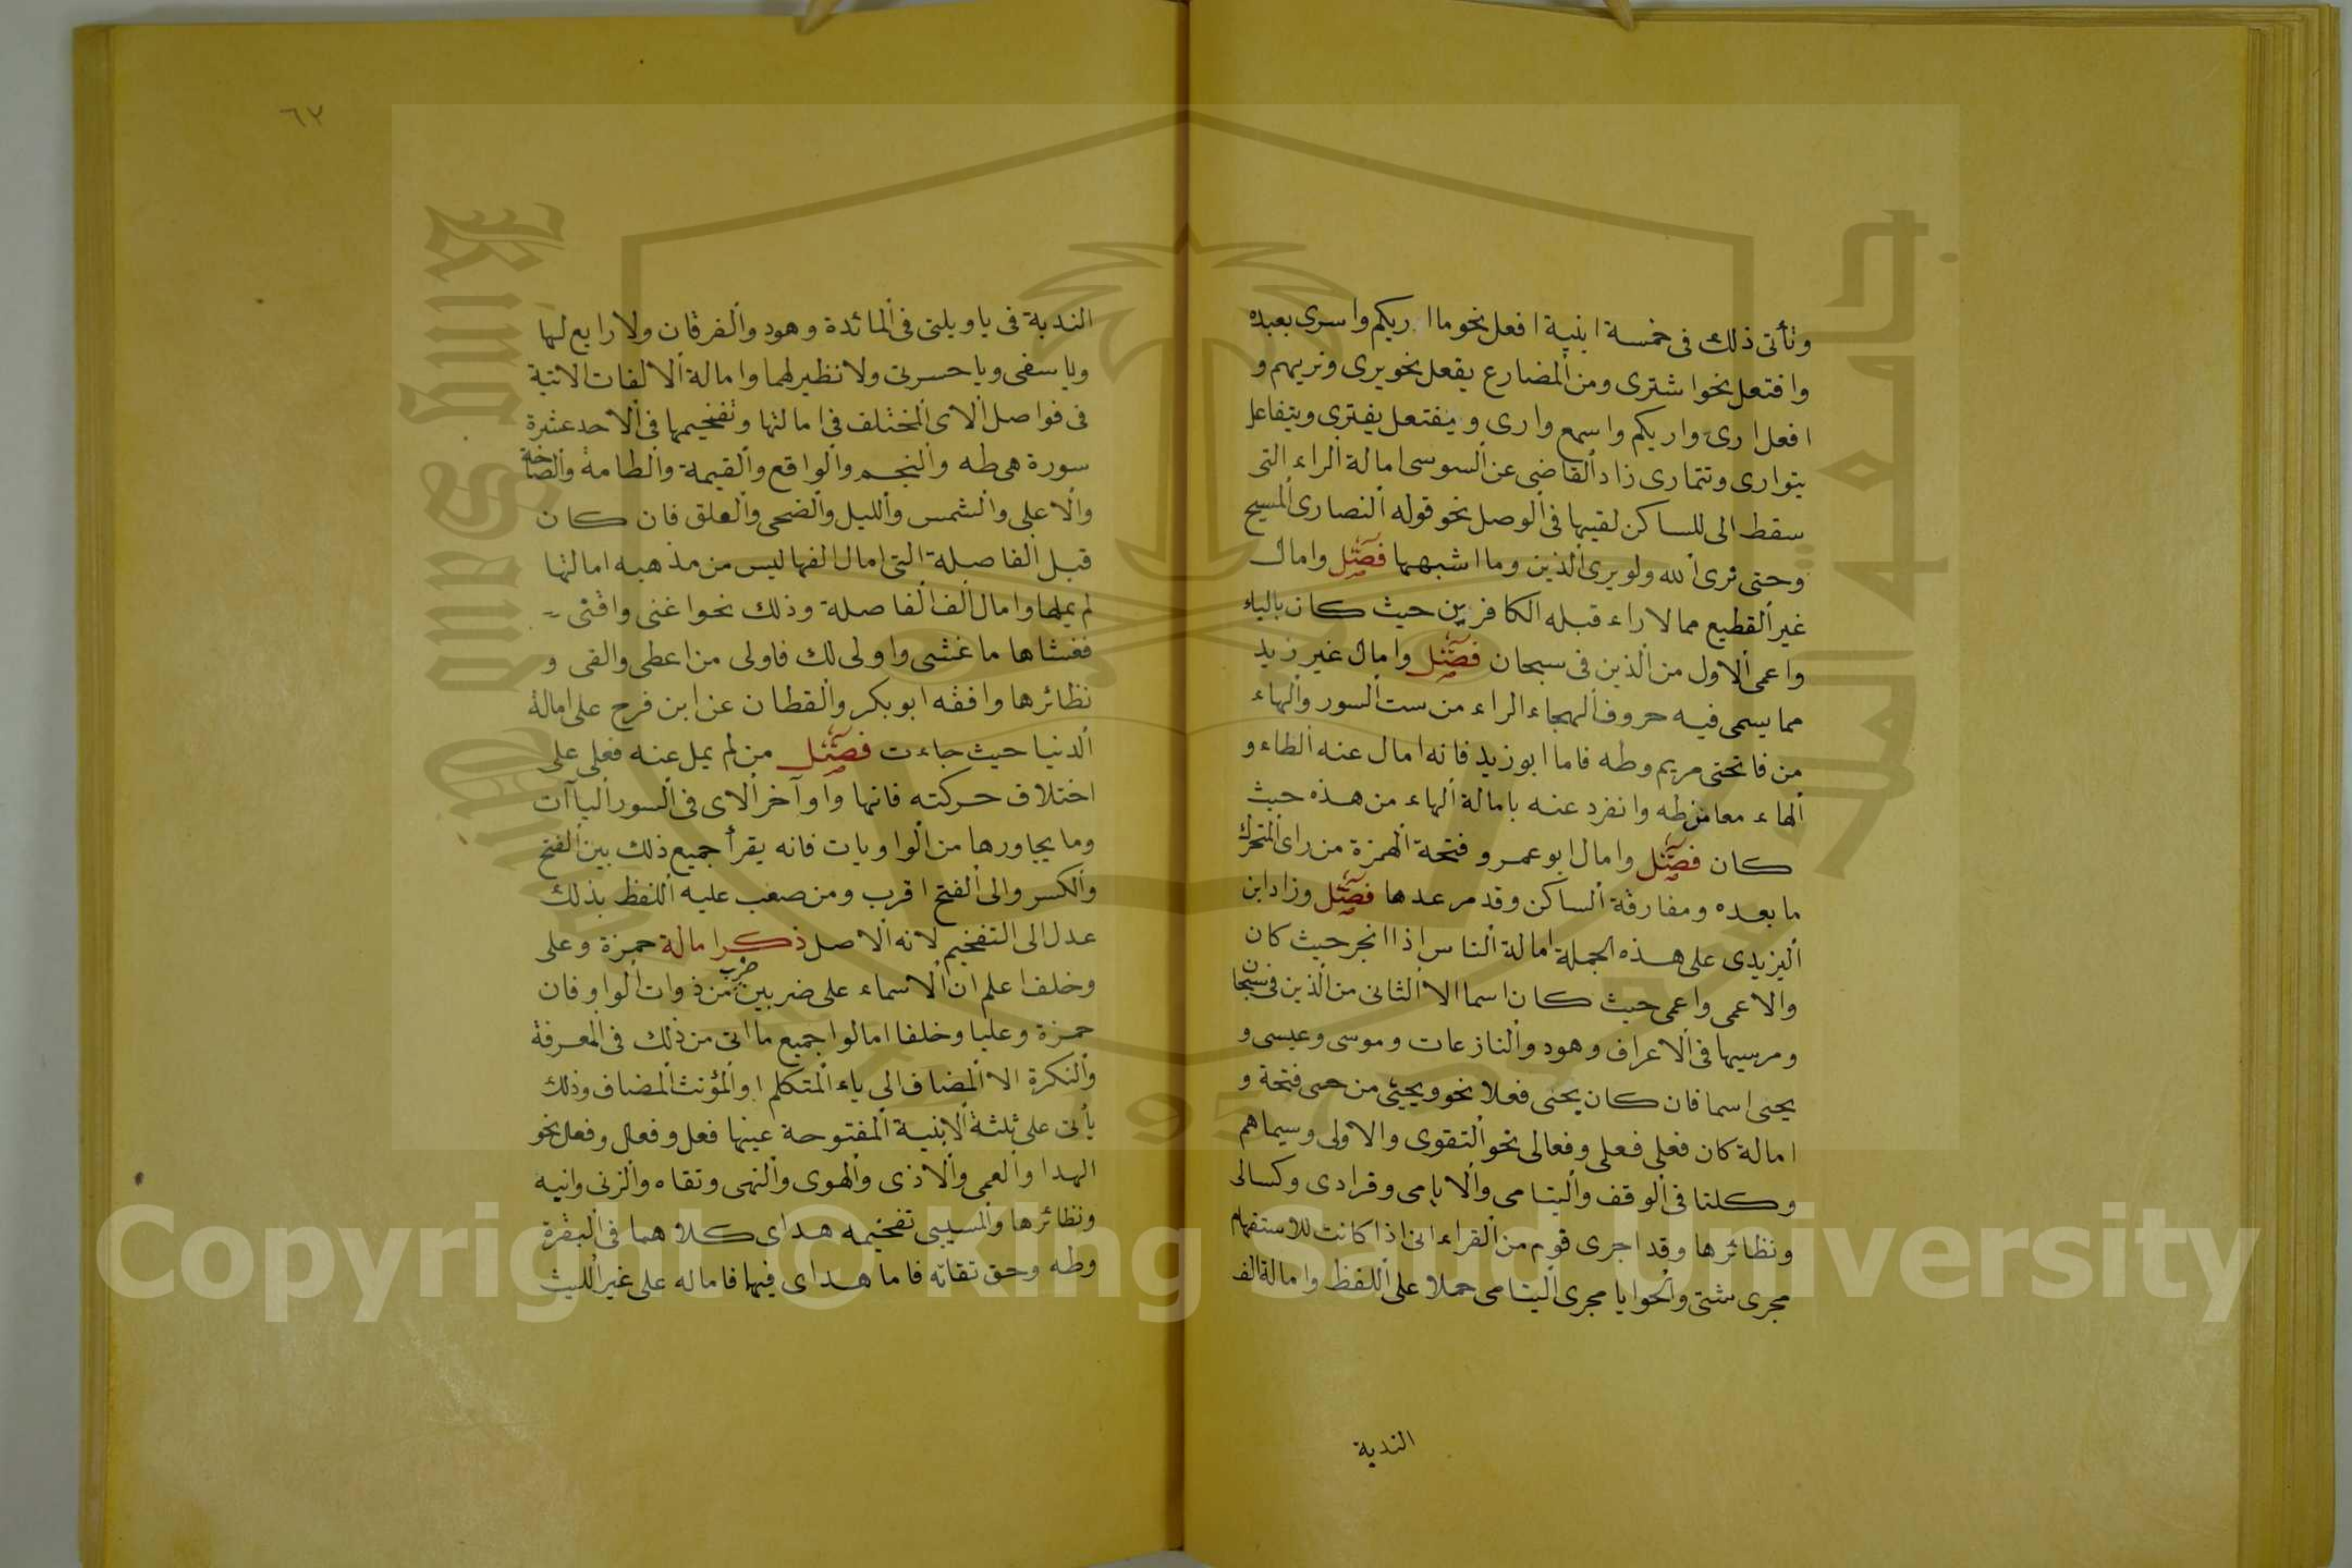 وتأتى ذلك فى خمسة ابنية افعل نحو ما اريكم واسرى بعبده
وافتعل نحو اشترى ومن المضارع يفعل نحو يرى ونريهم و
افعل ارى واريكم واسمع وارى و يفتعل يفترى ويتفاعل
يتوارى وتتمارى زاد القاضى عن السوسى امالة الراء التى
سقط الى للساكن لقيها فى الوصل نحو قوله النصارى المسيح
وحتى نرى الله ولو يرى الذين وما اشبهها فصل وامال
غير القطيع مما لا راء قبله الكافرين حيث كان بالياء
واعمى الاول من الذين فى سبحان فصل وامال غير زيد
مما يسمى فيه حروف الهجاء الراء من ست السور والهاء
من فاتحتى مريم وطه فاما ابو زيد فانه امال عنه الطاء و
الهاء معا من طه وانفرد عنه بامالة الهاء من هذه حيث
كان فصل وامال ابو عمرو فتحة الهمزة من راى المتحرك
ما بعده ومفارقة الساكن وقد مر عدها فصل وزاد ابن
اليزيدى على هذه الجملة امالة الناس اذا انجر حيث كان
والاعمى واعمى حيث كان اسما الا الثانى من الذين فى سبحان
ومرسيها فى الاعراف وهود والنازعات وموسى وعيسى و
يحيى اسما فان كان يحيى فعلا نحو ويحيى من حى فتحة و
امالة كان فعلى فعلى وفعالى نحو التقوى والاولى وسيماهم
وكلتا فى الوقف واليتامى والايامى وفرادى وكسالى
ونظائرها وقد اجرى قوم من القراء انى اذا كانت للاستفهام
مجرى شتى والحوايا مجرى اليتامى حملا على اللفظ وامالة الف
الندبة
٦٧
الندبة فى ياويلتى فى المائدة وهود والفرقان ولا رابع لها
وياسفى وياحسرتى ولا نظير لهما وامالة الالفات الاتية
فى فواصل الاى المختلف فى امالتها وتفخيمها فى الاحد عشرة
سورة هى طه والنجم والواقع والقيمة والطامة والصاخة
والاعلى والشمس والليل والضحى والعلق فان كان
قبل الفاصلة التى امال الفها ليس من مذهبه امالتها
لم يملها وامال الف الفاصلة وذلك نحو اغنى واقنى
فغشاها ما غشى واولى لك فاولى من اعطى والقى و
نظائرها وافقه ابو بكر والقطان عن ابن فرح على امالة
الدنيا حيث جاءت فصل من لم يمل عنه فعلى على
اختلاف حركته فانها واواخر الاى فى السور الياآت
وما يجاورها من الواويات فانه يقرأ جميع ذلك بين الفتح
والكسر والى الفتح اقرب ومن صعب عليه اللفظ بذلك
عدل الى التفخيم لانه الاصل ذكر امالة حمزة وعلى
وخلف اعلم ان الاسماء على ضربين ضرب من ذوات الواو فان
حمزة وعليا وخلفا امالوا جميع ما اتى من ذلك فى المعرفة
والنكرة الا المضاف الى ياء المتكلم او المؤنث المضاف وذلك
يأتى على ثلثة الابنية المفتوحة عينها فعل وفعل وفعل نحو
الهدا والعمى والاذى والهوى والنهى وتقاه والزنى وانيه
ونظائرها والمسيبى تفخيمه هداى كلاهما فى البقرة
وطه وحق تقاته فاما هداى فيها فاماله على غير الليث
Copyright © King Saud University